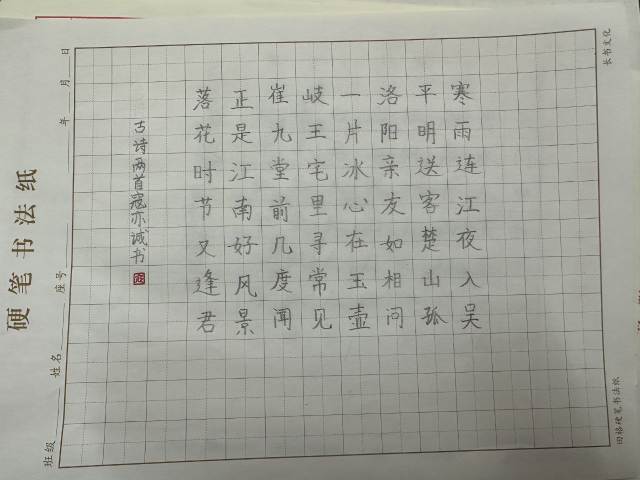 硬笔书法纸
班级 姓名 座号 年 月 日
寒雨连江夜入吴
平明送客楚山孤
洛阳亲友如相问
一片冰心在玉壶
岐王宅里寻常见
崔九堂前几度闻
正是江南好风景
落花时节又逢君
古诗两首寇亦诚书
长书文化
田格硬笔书法纸